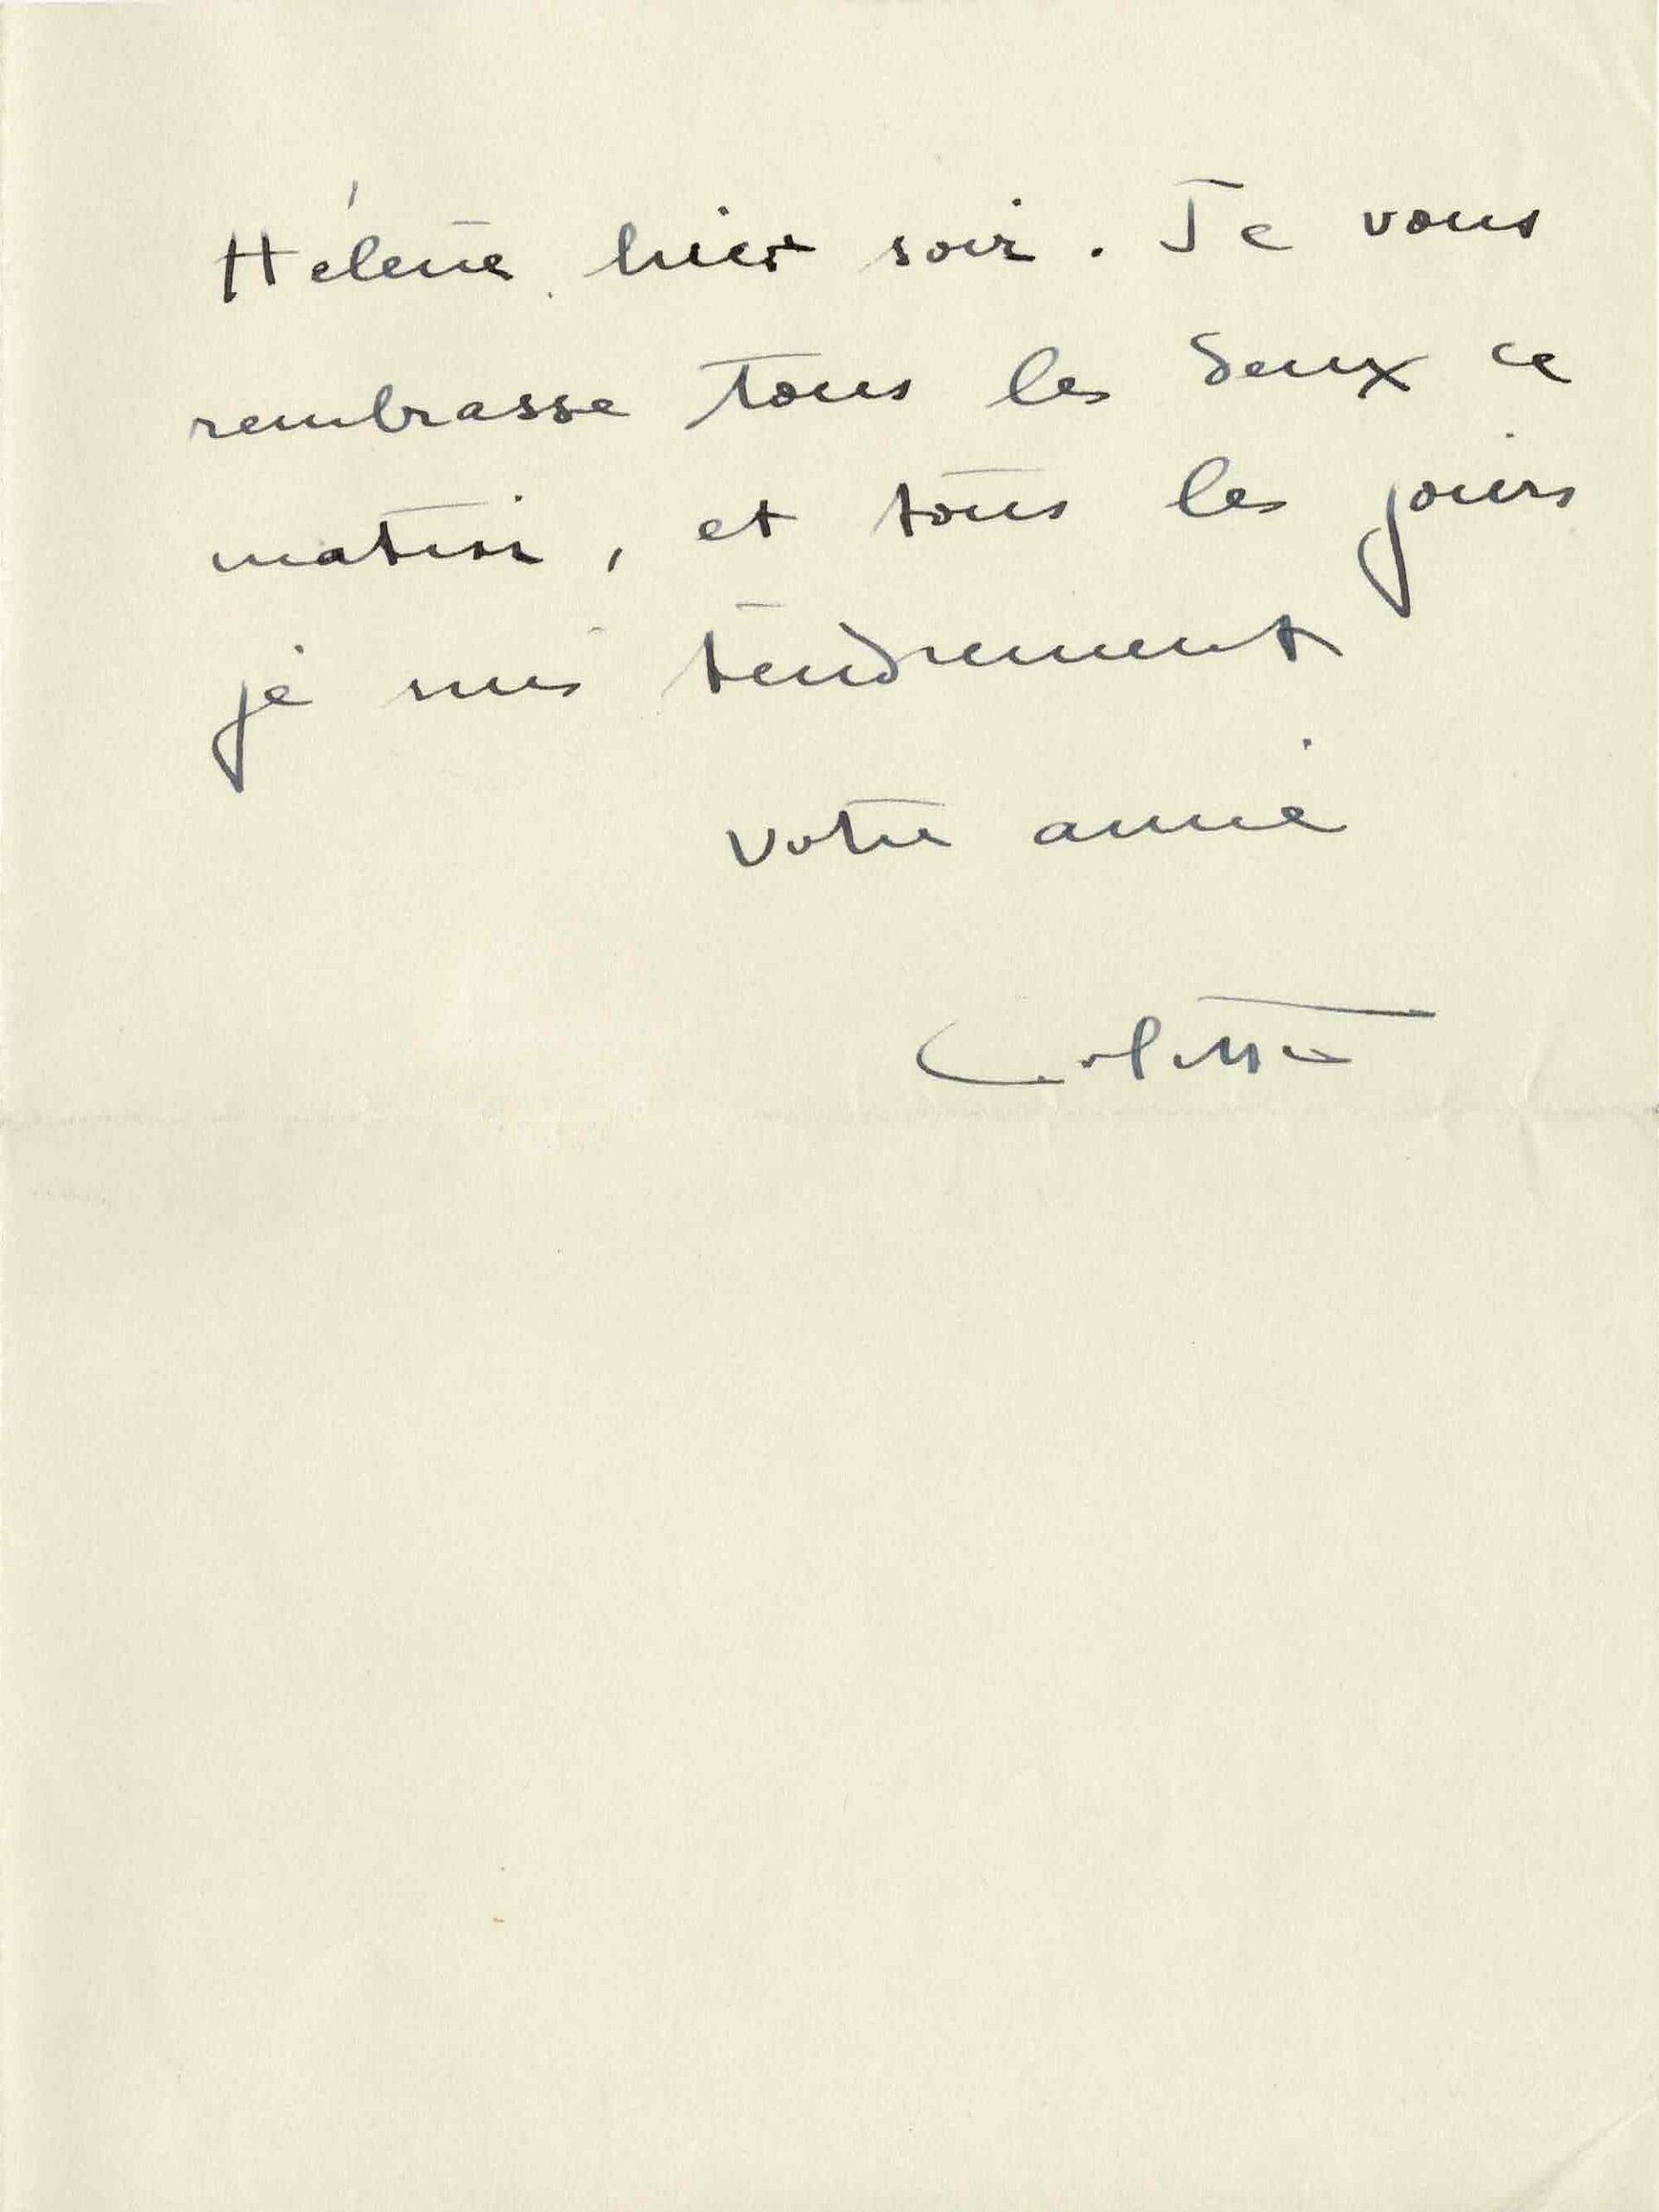 Hélène hier soir. Je vous
rembrasse tous les deux ce
matin, et tous les jours
je suis tendrement
votre amie
Colette